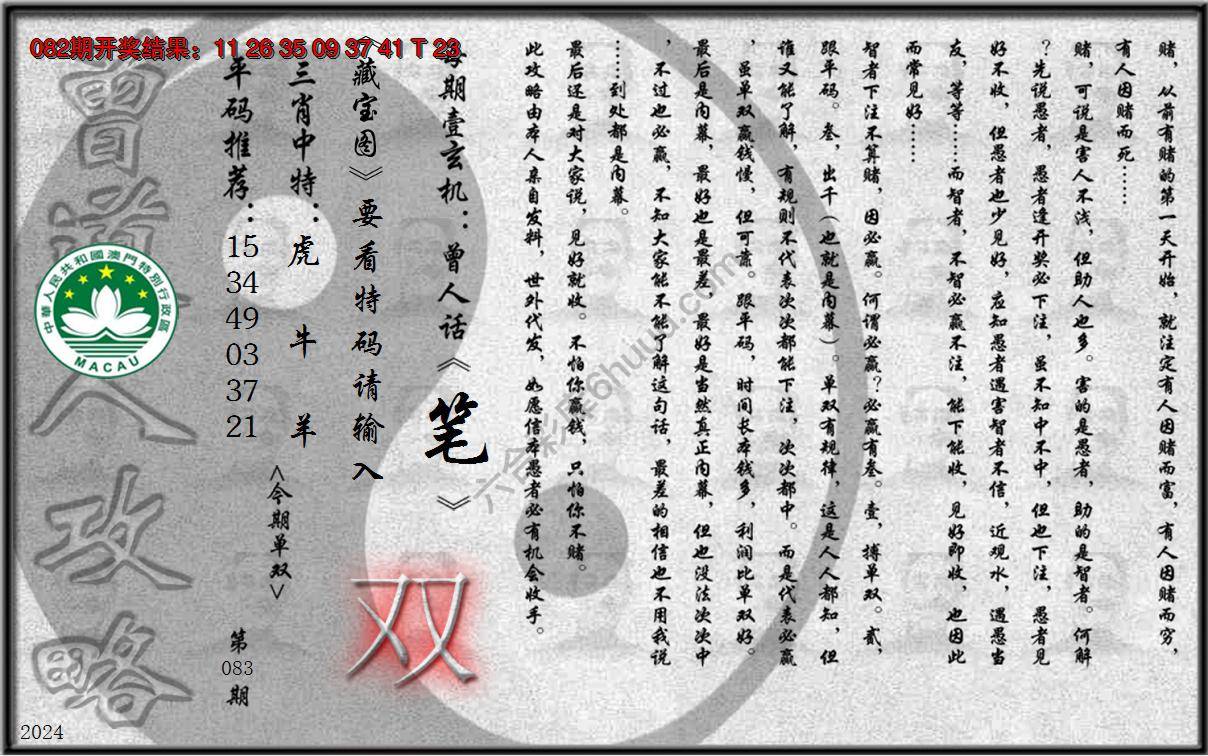 082期开奖结果：11 26 35 09 37 41 T 23
赌，从前有赌的第一天开始，就注定有人因赌而富，有人因赌而穷，
有人因赌而死……
赌，可说是害人不浅，但助人也多。害的是愚者，助的是智者。何解
？先说愚者，愚者逢开奖必下注，虽不知中不中，但也下注，愚者见
好不收，但愚者也少见好，应知愚者遇害智者不信，近观水，遇愚当
友，等等……而智者，不智必赢不注，能下能收，见好即收，也因此
而常见好……
智者下注不算赌，因必赢。何谓必赢？必赢有叁。壹，搏单双。贰，
跟平码。叁，出千（也就是内幕）。单双有规律，这是人人都知，但
谁又能了解，有规则不代表次次都能下注，次次都中。而是代表必赢
，虽单双赢钱慢，但可靠。跟平码，时间长本钱多，利润比单双好。
最后是内幕，最好也是最差，最好是当然真正内幕，但也没法次次中
，不过也必赢，不知大家能不能了解这句话，最差的相信也不用我说
……到处都是内幕。
最后还是对大家说，见好就收。不怕你赢钱，只怕你不赌。
此攻略由本人亲自发料，世外代发，如愿信本愚者必有机会收手。
每期壹玄机：曾人话《笔》
《藏宝图》要看特码请输入
双
三肖中特：虎 牛 羊
<今期单双>
平码推荐：15 34 49 03 37 21
第083期
曾道人攻略
中華人民共和國澳門特別行政區
MACAU
六合彩库6huuu.com
2024